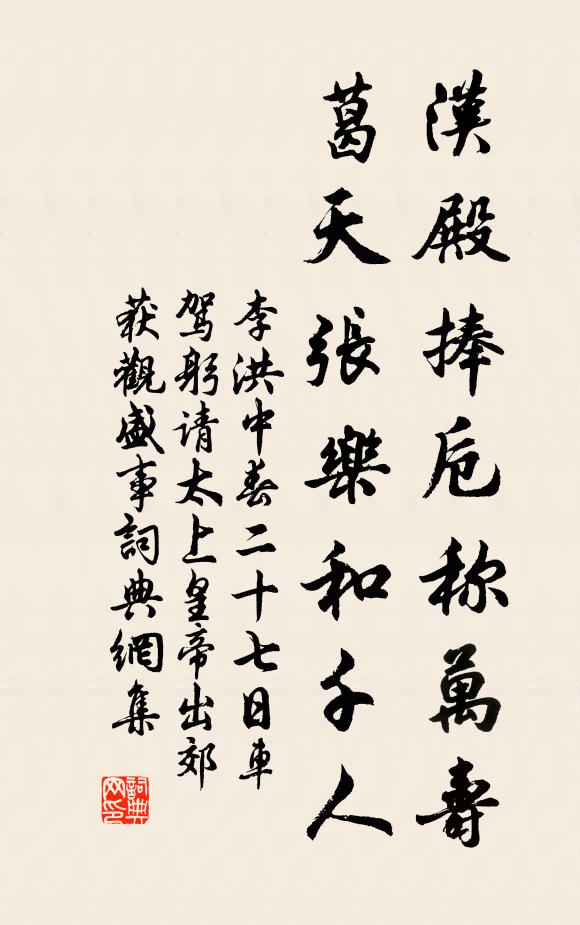 漢殿捧卮称萬壽
葛天張樂和千人
李洪中春二十七日車
駕躬请太上皇帝出郊
获觀盛事詞典網集
詞典网印